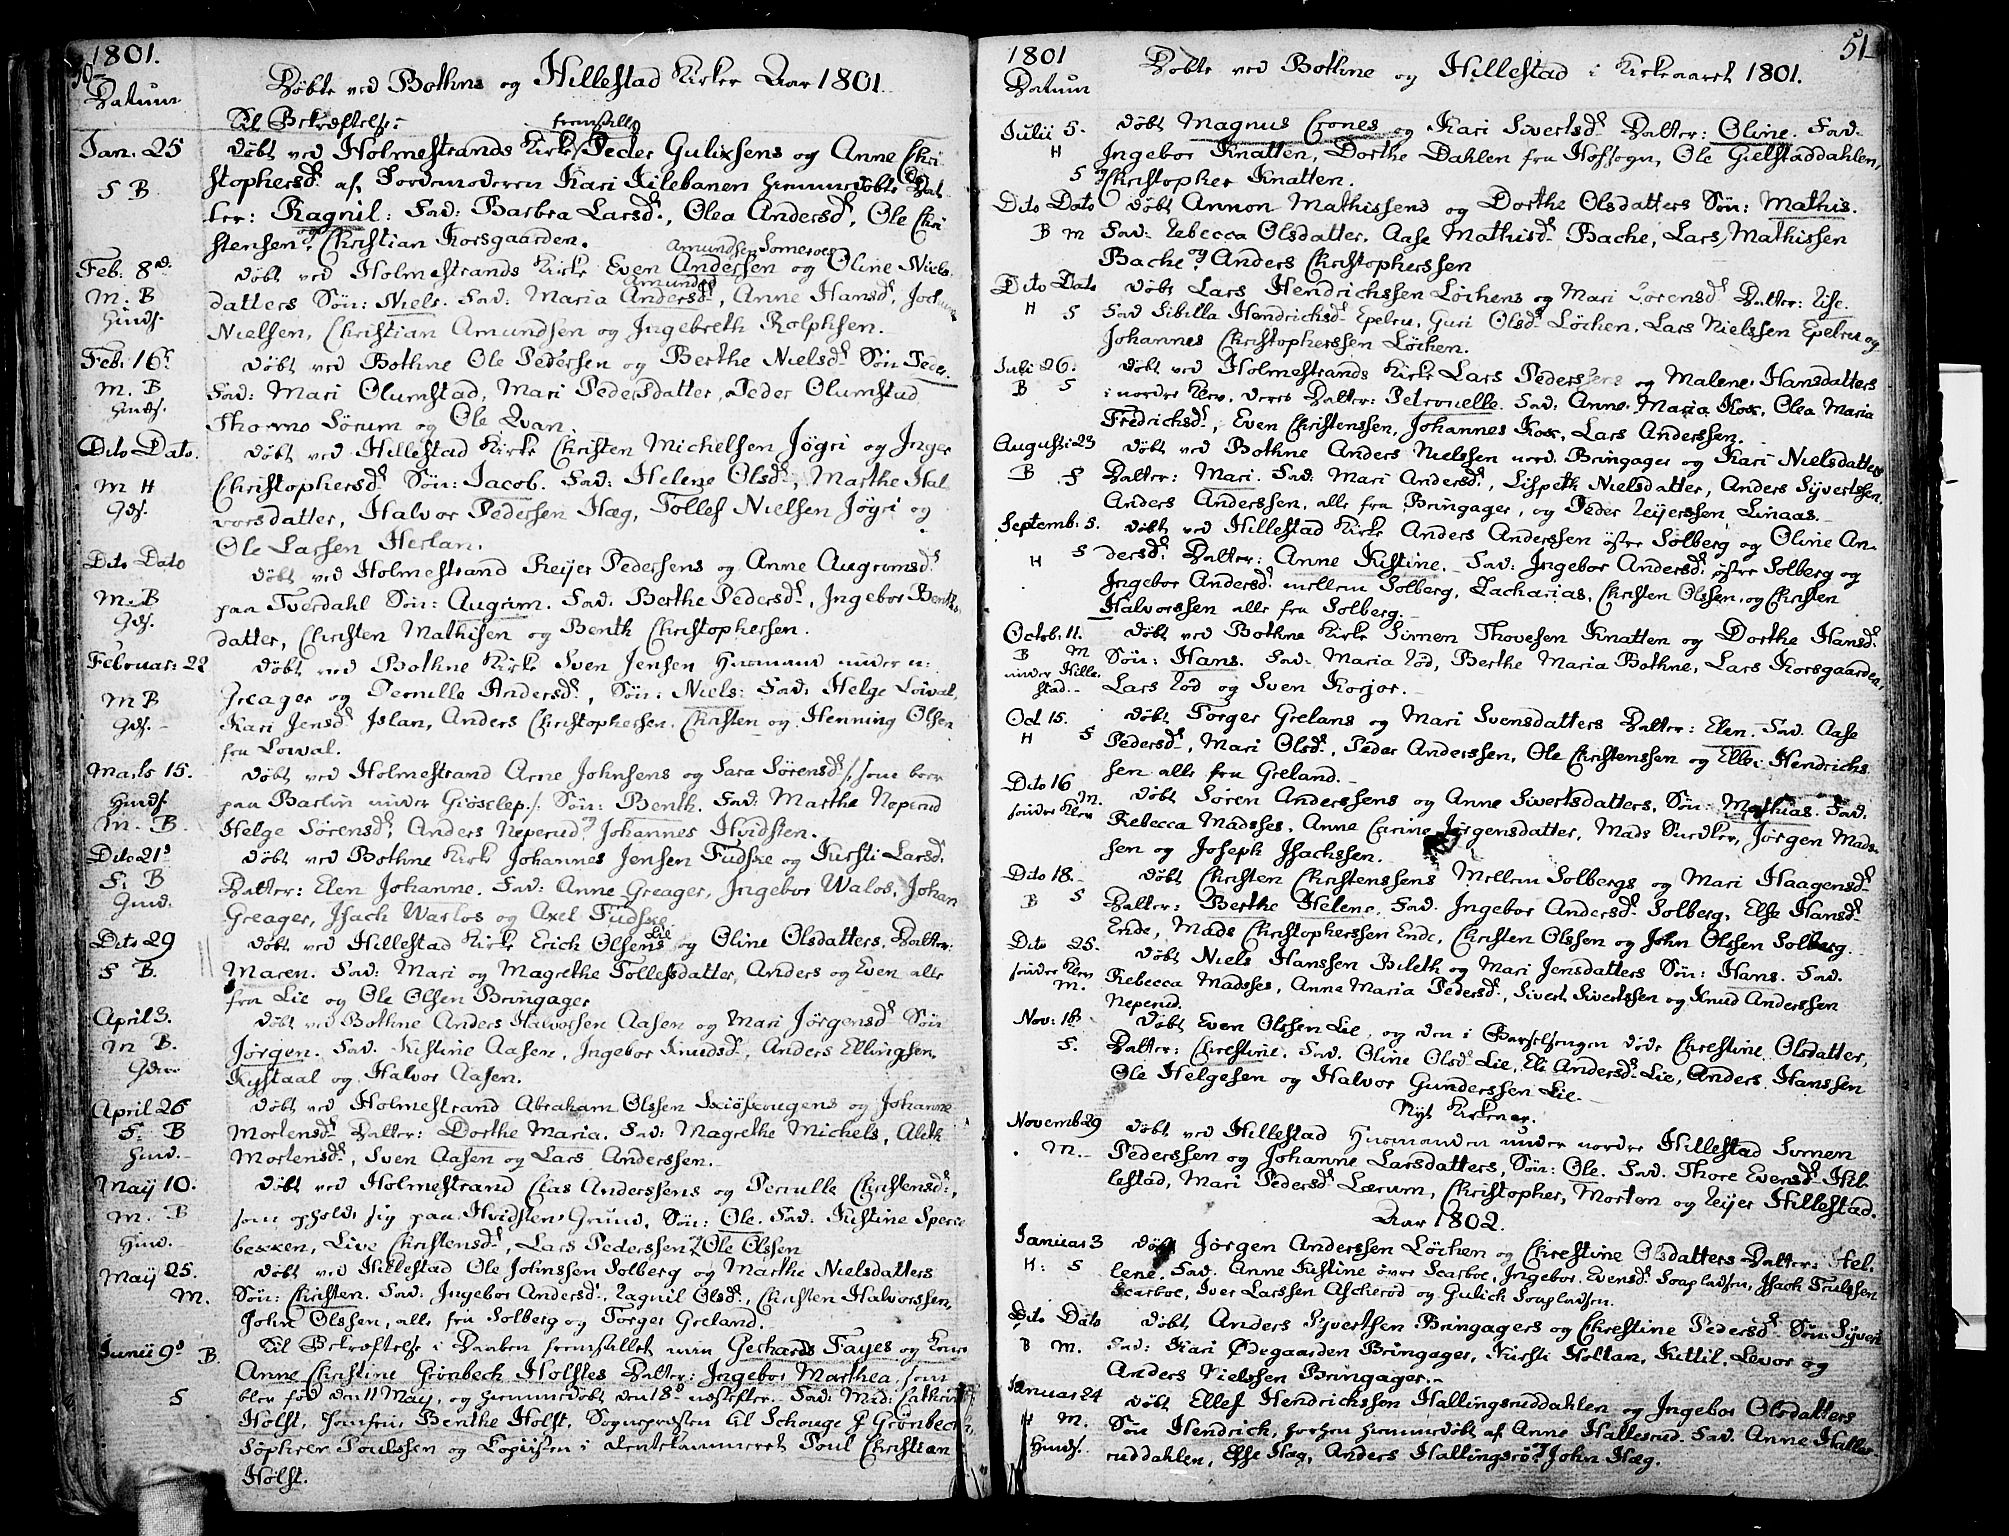 1801.
50
Datum
Døbte ved Bothne og Hillestad Kirker Aar 1801.
Til Bekræftelse: fremstillt
Jan. 25
Døbt ved Holmestrands Kirke Peder Gulixsens og Anne Chri
F B
stophersdr. af Jordemoderen Kari Kilebanen hiemmedøbte Dat
ter: Ragnil: Fad: Barbra Larsdr., Olea Andersdr, Ole Chri
stensen og Christian Korsgaarden.
Amundsen Someroe
Feb: 8d.
Døbt ved Holmestrands Kirke Even Anderssen og Oline Niels
Amundsd
M. B
datters Søn: Niels. Fad: Maria Andersdr, Anne Hansdr, Jochum
Huusf.
Nielsen, Christian Amundsen og Ingebreth Rolphsen.
Feb: 16.
Døbt ved Bothne Ole Pedersen og Berthe Nielsdr Søn Peder.
M. B
Fad: Mari Olumstad, Mari Pedersdatter, Peder Olumstad
Huusf.
Thormo Sørum og Ole Qvan.
Dito Dato.
Døbt ved Hillestad Kirke Christen Michelsen Jøgri og Inger
M H
Christophersdr Søn: Jacob. Fad: Helene Olsdr, Marthe Hal
Gdf.
vorsdatter, Halvor Pedersen Hæg, Tollef Nielsen Jøgri og
Ole Larsen Herlan.
Dito Dato
Døbt ved Holmestrand Reijer Pedersens og Anne Augrimsdr
M. B
paa Tverdahl Søn: Augrim. Fad: Berthe Pedersdr, Ingebor Benths
Gdf.
datter, Christen Mathisen og Benth Christophersen.
Februar: 22
Døbt ved Bothne Kirke Sven Jensen Huusmand under n:
M B
Greager og Pernille Andersdr, Søn: Niels: Fad: Helge Lowal
Gdf.
Kari Jensdr Islan, Anders Christophersen, Christen og Henning Olsen
fra Lowal.
Marts 15.
Døbt ved Holmestrand Arne Johnsens og Sara Sørensdr /: som boer
Huusf.
paa Barlin under Grøselep :/ Søn: Benth. Fad: Marthe Neperud
M. B.
Helge Sørensdr, Anders Neperud og Johannes Hvidsten.
Dito 21d
Døbt ved Bothne Kirke Johannes Jensen Fudske og Kirsti Larsdr
F. B
Datter: Elen Johanne. Fad: Anne Greager, Ingebor Walos, Johan
Huusd.
Greager, Isach Warlos og Axel Fudske
Dito 29
Døbt ved Hillestad Kirke Erich Olsens Lie og Oline Olsdatters, Datter:
F B.
Maren. Fad: Mari og Magrethe Tollefsdatter, Anders og Even alle
fra Lie og Ole Olsen Bringager
April 3.
Døbt ved Bothne Anders Halvorssen Aasen og Mari Jørgensdr Søn
M B.
Jørgen. Fad: Kistine Aasen, Ingebor Knudsdr, Anders Ellingsen
Gdm
Kystaal og Halvor Aasen.
April 26
Døbt ved Holmestrand Abraham Olssen Skiøskougens og Johanne
F. B
Mortensdr Datter: Dorthe Maria. Fad: Magrethe Michels, Aleth
Huusd.
Mortensdr, Sven Aasen og Lars Anderssen.
Maij 10.
Døbt ved Holmestrand Clas Anderssens og Pernille Christensdr,
M. B
som opholdt sig paa Hvidsten Grund, Søn: Ole. Fad: Kistine Speri
Huusd.
bekken, Live Christensdr, Lars Pederssen og Ole Olssen
Maij 25.
Døbt ved Hillestad Ole Johnssen Solberg og Marthe Nielsdatters
M.
Søn: Christen. Fad: Ingebor Andersdr, Ragnil Olsdr, Christen Halvorssen,
John Olssen, alle fra Solberg og Torger Greland.
Junii 9d B.
Til Bekræftelse i Daaben fremstillet min Gerhards Fayes og Kone
Anne Christine Grønbech Holstes Datter: Ingebor Marthea, som
blev fød den 11 May, og hiemmedøbt den 18d næstefter. Fad: Mad: Cathrine
S
Holst, Jomfru Benthe Holst, Sognepræsten til Schouge P Grønbech,
Sophren Poulssen og Copiisten i Rentekammeret Poul Christian
Holst.
1801
51
Datum
Døbte ved Bothne og Hillestad i Kirkeaaret 1801.
Julii 5.
Døbt Magnus Crones og Kari Sivertsdr Datter: Oline. Fad.
H
Ingebor Knatten, Dorthe Dahlen fra Hofsogn, Ole Gielstaddahlen,
S
og Christopher Knatten.
Dito Dato
Døbt Annon Mathissens og Dorthe Olsdatters Søn: Mathis.
B M
Fad: Rebecca Olsdatter, Aase Mathisdr Bache, Lars Mathissen
Bache og Anders Christopherssen
Dito Dato
Døbt Lars Hendrichssen Løchens og Mari Sørensdr Datter: Lise.
H S
Fad Sibilla Hendrichsdr Epelru, Guri Olsdr Løchen, Lars Nielssen Epelru og
Johannes Christopherssen Løchen.
Julii 26.
Døbt ved Holmestrands Kirke Lars Pederssens og Malene Hansdatters
B S
i nordre Kleve, deres Datter: Petronelle. Fad: Anne Maria Kox, Olea Maria
Fredrichsdr, Even Christenssen, Johannes Kox, Lars Anderssen.
Augusti 23
Døbt ved Bothne Anders Nielssen nord. Bringager og Kari Nielsdatters
B S
Datter: Mari. Fad: Mari Andersdr, Lispeth Nielsdatter, Anders Syvertssen,
Anders Anderssen, alle fra Bringager, og Peder Reijerssen Linaas.
Septemb. 5.
Døbt ved Hillestad Kirke Anders Anderssen øfre Solberg og Oline An
H S
dersdr Datter: Anne Kistine. Fad: Ingebor Andersdr øfre Solberg og
Ingebor Andersdr mellem Solberg, Zacharias, Christen Olssen, og Christen
Halvorssen alle fra Solberg.
Octob: 11.
Døbt ved Bothne Kirke Simen Thovesen Knatten og Dorthe Hansdr
B M
Søn: Hans. Fad: Maria Rød, Berthe Maria Bothne, Lars Korsgaarden,
under Hille
stad.
Lars Rød og Sven Korjor.
Oct 15.
Døbt Torger Grelans og Mari Svensdatters Datter: Elen. Fad Aase
H S
Pedersdr, Mari Olsdr, Peder Anderssen, Ole Christenssen og Ellef Hendrichs
sen alle fra Greland.
Dito 16
M.
Døbt Søren Anderssens og Anne Sivertsdatters, Søn: Mathias. Fad.
søndre Klev
Rebecca Madsses, Anne Carine Jørgensdatter, Mads Snedker, Jørgen Mads
sen og Joseph Isachssen.
Dito 18.
Døbt Christen Christenssens Mellem Solbergs og Mari Haagensdr
B S
Datter: Berthe Helene. Fad. Ingebor Andersdr Solberg, Else Hansdr
Ende, Mads Christopherssen Ende, Christen Olssen og John Olssen Solberg.
Dito 25.
Døbt Niels Hanssen Bileth og Mari Jensdatters Søn: Hans. Fad.
søndre Klev
M.
Rebecca Madsses, Anne Maria Pedersdr, Sivert Sivertssen og Knud Anderssen
Neperud.
Nov: 1 B
Døbt Even Olssen Lie, og den i Barselsengen døde Christine Olsdatter,
S.
Datter: Christine. Fad. Oline Olsdr Lie, Eli Andersdr Lie, Anders Hanssen
Ole Helgesen og Halvor Gunderssen Lie.
Nyt Kirkeaar.
Novemb 29
Døbt ved Hillestad Huusmanden under nordre Hillestad Simen
M.
Pederssen og Johanne Larsdatters, Søn: Ole. Fad. Thore Evensdr Hil
lestad, Mari Pedersdr Lærum, Christopher, Morten og Reijer Hillestad.
Aar 1802.
Januar 3
Døbt Jørgen Anderssen Løchen og Christine Olsdatters Datter: Hel
H: S
lene. Fad. Anne Kistine øvre Scarboe, Ingebor Evensdr Soapladsen, Isach Trulssen
Scarboe, Iver Larssen Ascherød og Gulich Soapladsen.
Dito Dato
Døbt, Anders Syvertsen Bringagers og Christine Pedersdr Søn: Syvert
B M.
Fad: Kari Ødegaarden Bringager, Kirsti Holtan, Kittil, Levor og
Anders Nielssen Bringager.
Januar 24
Døbt Ellef Hendrichssen Hallingsruddahlen og Ingebor Olsdatters
H M.
Søn Hendrick, forhen hiemmedøbt af Anne Hallesrud. Fad. Anne Halles
Huusf.
ruddahlen, Else Hæg, Anders Hallingsrø og John Hæg.